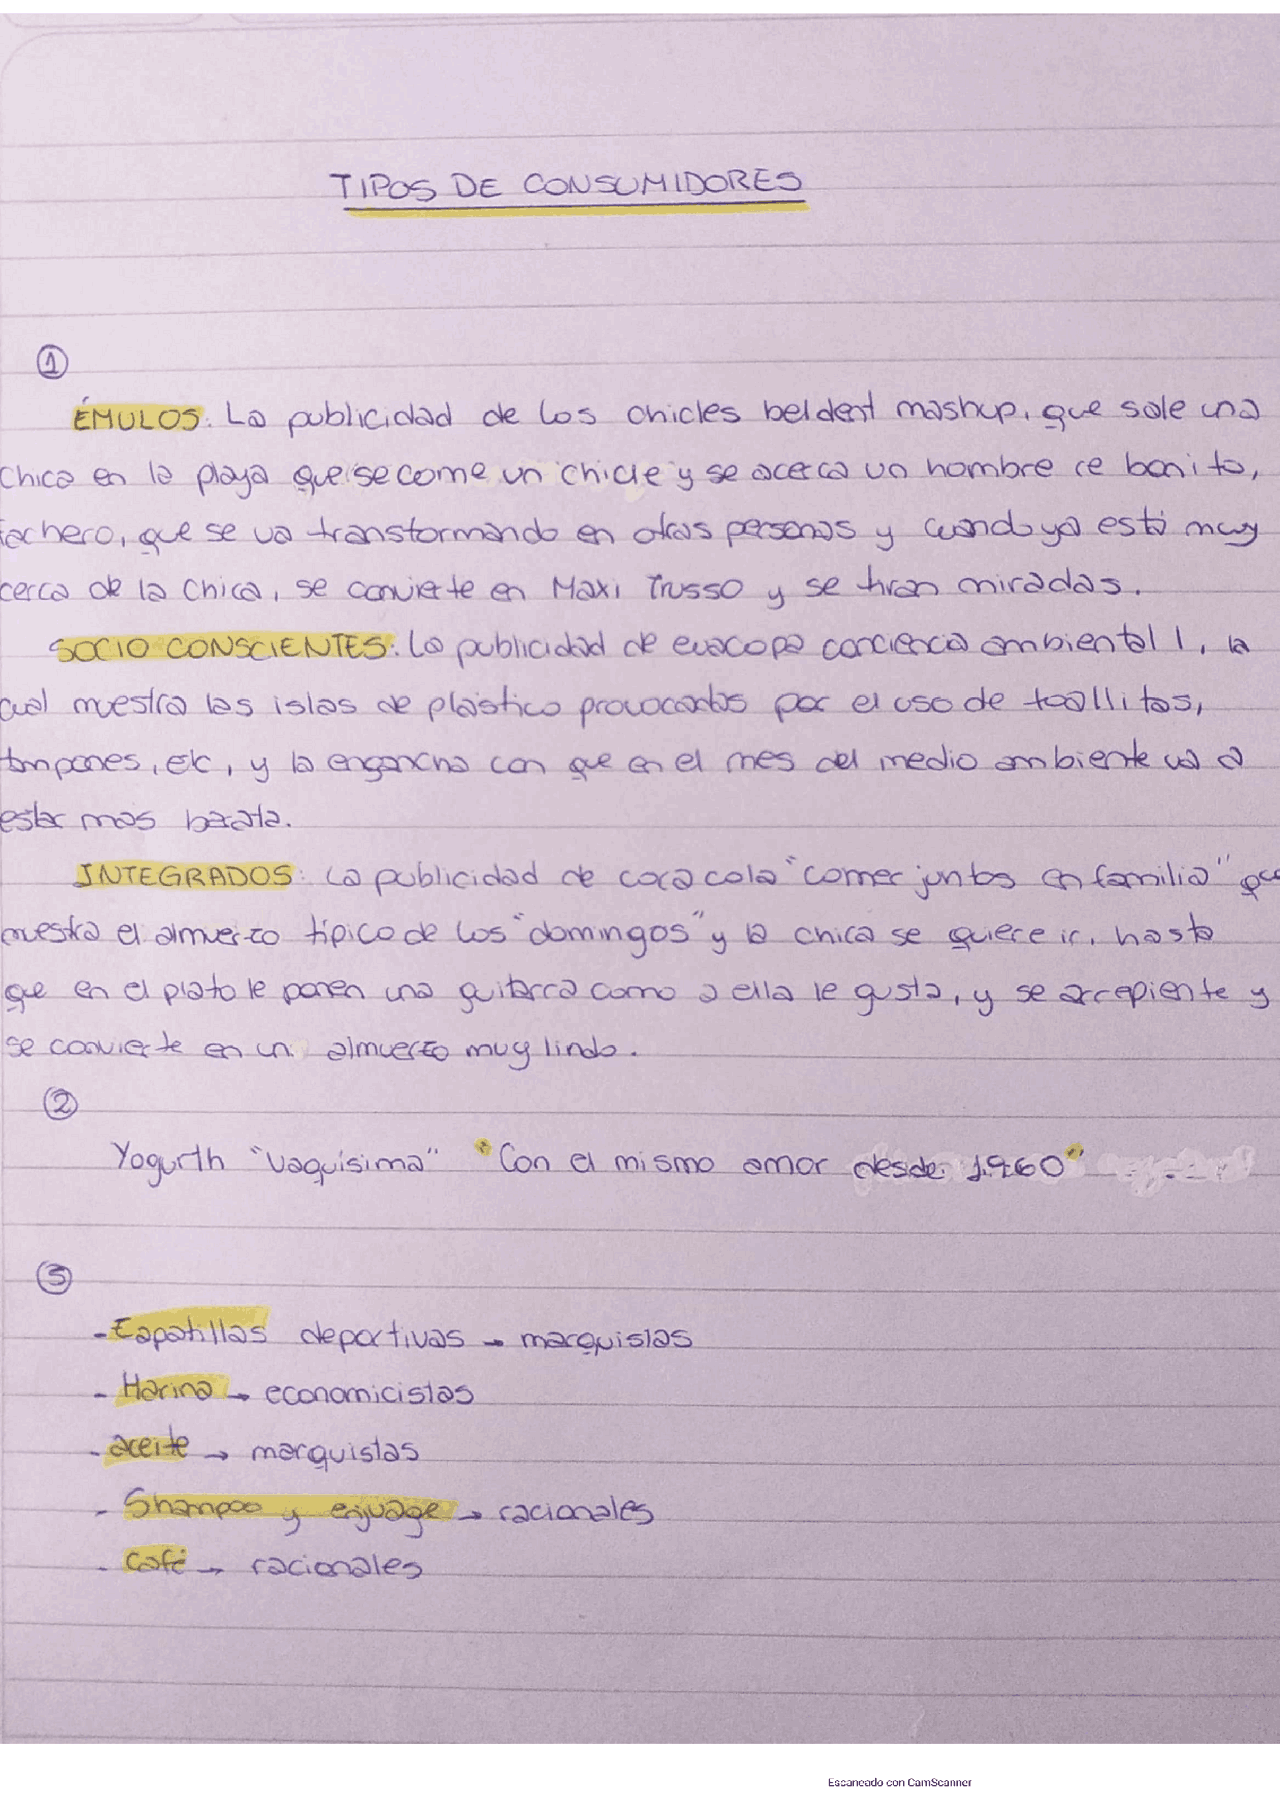 TIPOS DE CONSUMIDORES
1
ÉMULOS: La publicidad de los chicles beldent mashup, que sale una
chica en la playa que se come un chicle y se acerca un hombre re bonito,
fachero, que se va transformando en otras personas y cuando ya está muy
cerca de la chica, se convierte en Maxi Trusso y se tiran miradas.
SOCIO CONSCIENTES: La publicidad de evacopa conciencia ambiental 1, la
cual muestra las islas de plástico provocadas por el uso de toallitas,
tampones, etc, y la engancha con que en el mes del medio ambiente va a
estar mas barata.
INTEGRADOS: La publicidad de coca cola "comer juntos en familia" que
muestra el almuerzo típico de los "domingos" y la chica se quiere ir, hasta
que en el plato le ponen una guitarra como a ella le gusta, y se arrepiente y
se convierte en un almuerzo muy lindo.
2
Yogurth "Vaquísima" "Con el mismo amor desde 1960"
3
- Zapatillas deportivas → marquistas
- Harina → economicistas
- aceite → marquistas
- Shampoo y enjuage → racionales
- Café → racionales
Escaneado con CamScanner